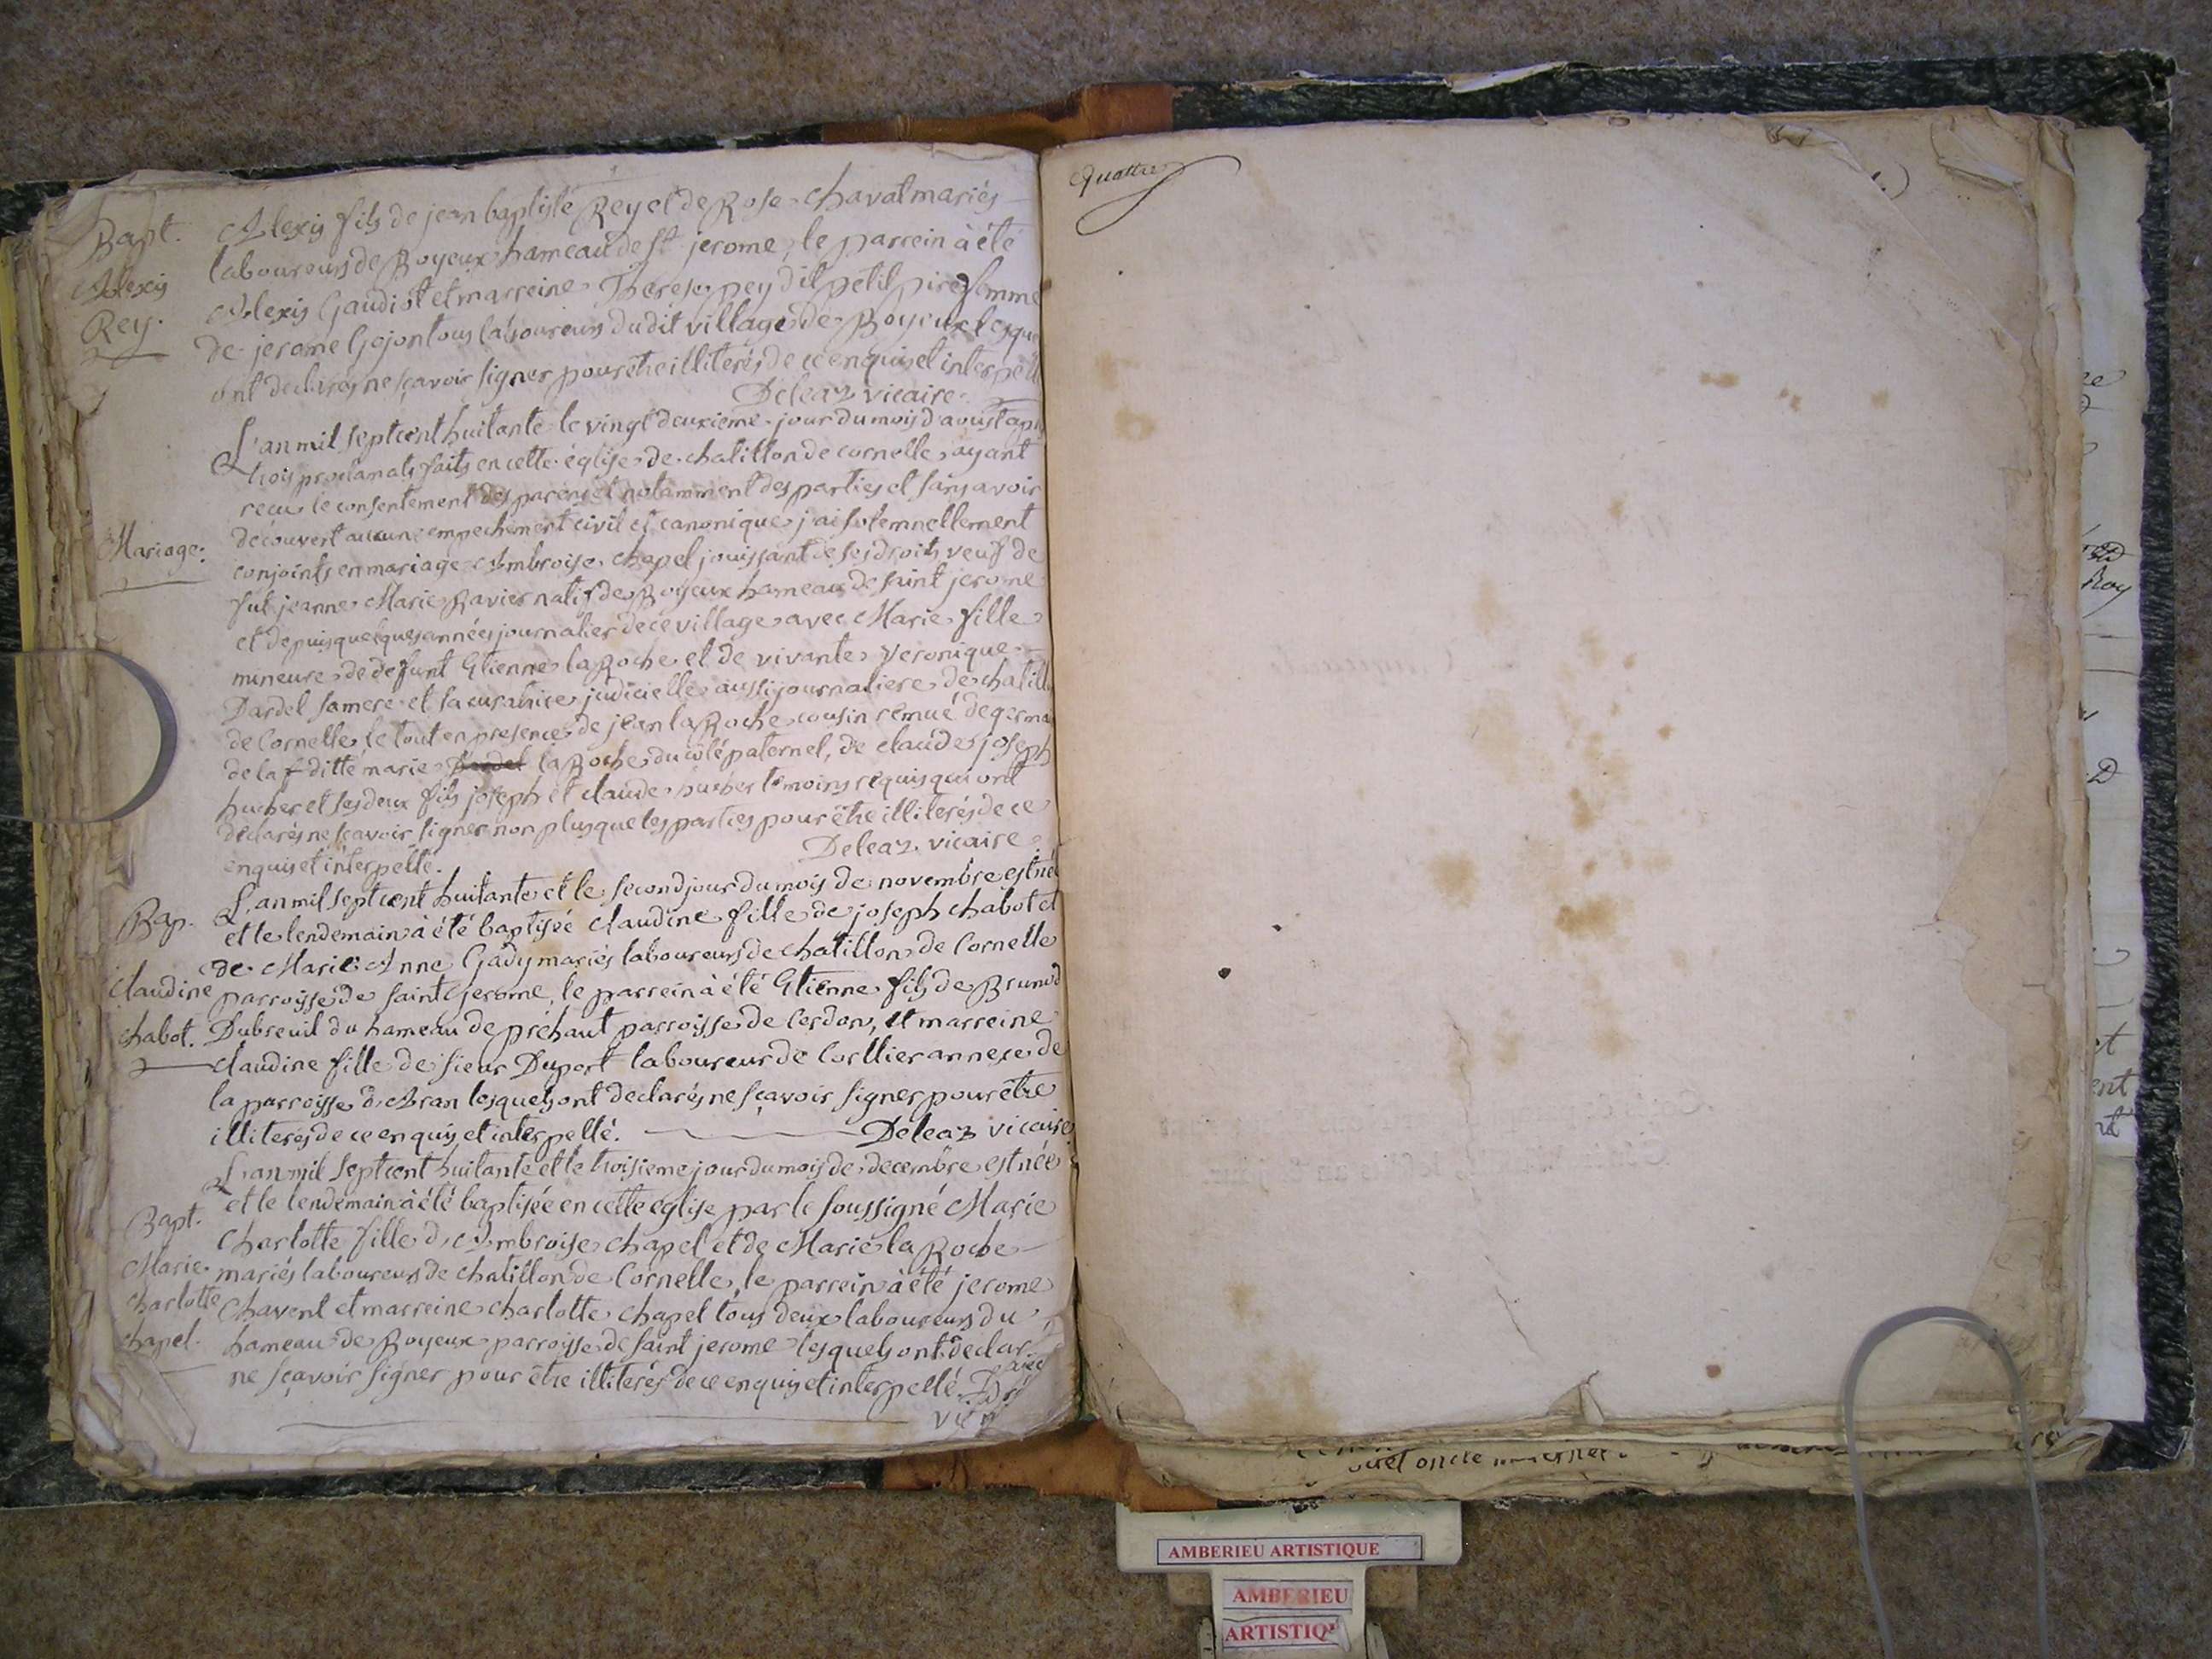 Bapt.
Alexis
Rey.
Alexis fils de jean baptiste Rey et de Rose Chavat mariés
laboureurs de Boyeux hameau de st jerome, le parrein à été
Alexis Gaudiot et marreine Therese pey dit petit pire femme
de jerome Gojon tous laboureurs dudit village de Boyeux lesque
ont declarés ne sçavoir signer pour être illiterés de ce enquis et interpell
Deleaz vicaire
L'an mil sept cent huitante le vingt deuxieme jour du mois d'aoust apr
trois proclamats faits en cette église de chatillon de cornelle ayant
recu le consentement des parens et notamment des parties et sans avoir
découvert aucune empechement civil et canonique j'ai solemnellement
Mariage:
conjoints en mariage Ambroise chapel jouissant de ses droits veuf de
fut jeanne Marie Ravier natif de Boyeux hameau de saint jerome
et depuis quelques années journalier de ce village avec Marie fille
mineure de defunt Etienne la Roche et de vivante Veronique
Dardel sa mere et sa curatrice judicielle aussi journaliere de chatill
de Cornelle, le tout en presence de jean la Roche cousin remué de germa
de la s ditte marie la Roche du côté paternel, de claude joseph
et ses deux fils joseph et claude temoins requis qui ont
declarés ne sçavoir signer non plus que les parties pour être illiterés de ce
enquis et interpellé.
Deleaz vicaire
Bap.
Claudine
chabot.
L'an mil sept cent huitante et le second jour du mois de novembre est née
et le lendemain à été baptisée claudine fille de joseph chabot et
de Marie Anne Gady mariés laboureurs de chatillon de Cornelle
parroisse de saint jerome, le parrein à été Etienne fils de Brunod
Dubreuil du hameau de préhaut parroisse de Cerdon, et marreine
claudine fille de sieur Duport laboureur de Corllier annexe de
la parroisse d'Aran lesquels ont declarés ne sçavoir signer pour être
illiterés de ce enquis et interpellé. Deleaz vicaire
L'an mil sept cent huitante et le troisieme jour du mois de decembre est née
et le lendemain à été baptisée en cette église par le soussigné Marie
Bapt.
Marie
charlotte
chapel.
Charlotte fille d'Ambroise chapel et de Marie la Roche
mariés laboureurs de chatillon de Cornelle, le parrein à été jerome
Chavent et marreine charlotte chapel tous deux laboureurs du
hameau de Boyeux parroisse de saint jerome lesquels ont declar
ne sçavoir signer pour être illiterés de ce enquis et interpellé.
Quattre
AMBERIEU ARTISTIQUE
AMBERIEU
ARTISTIQ